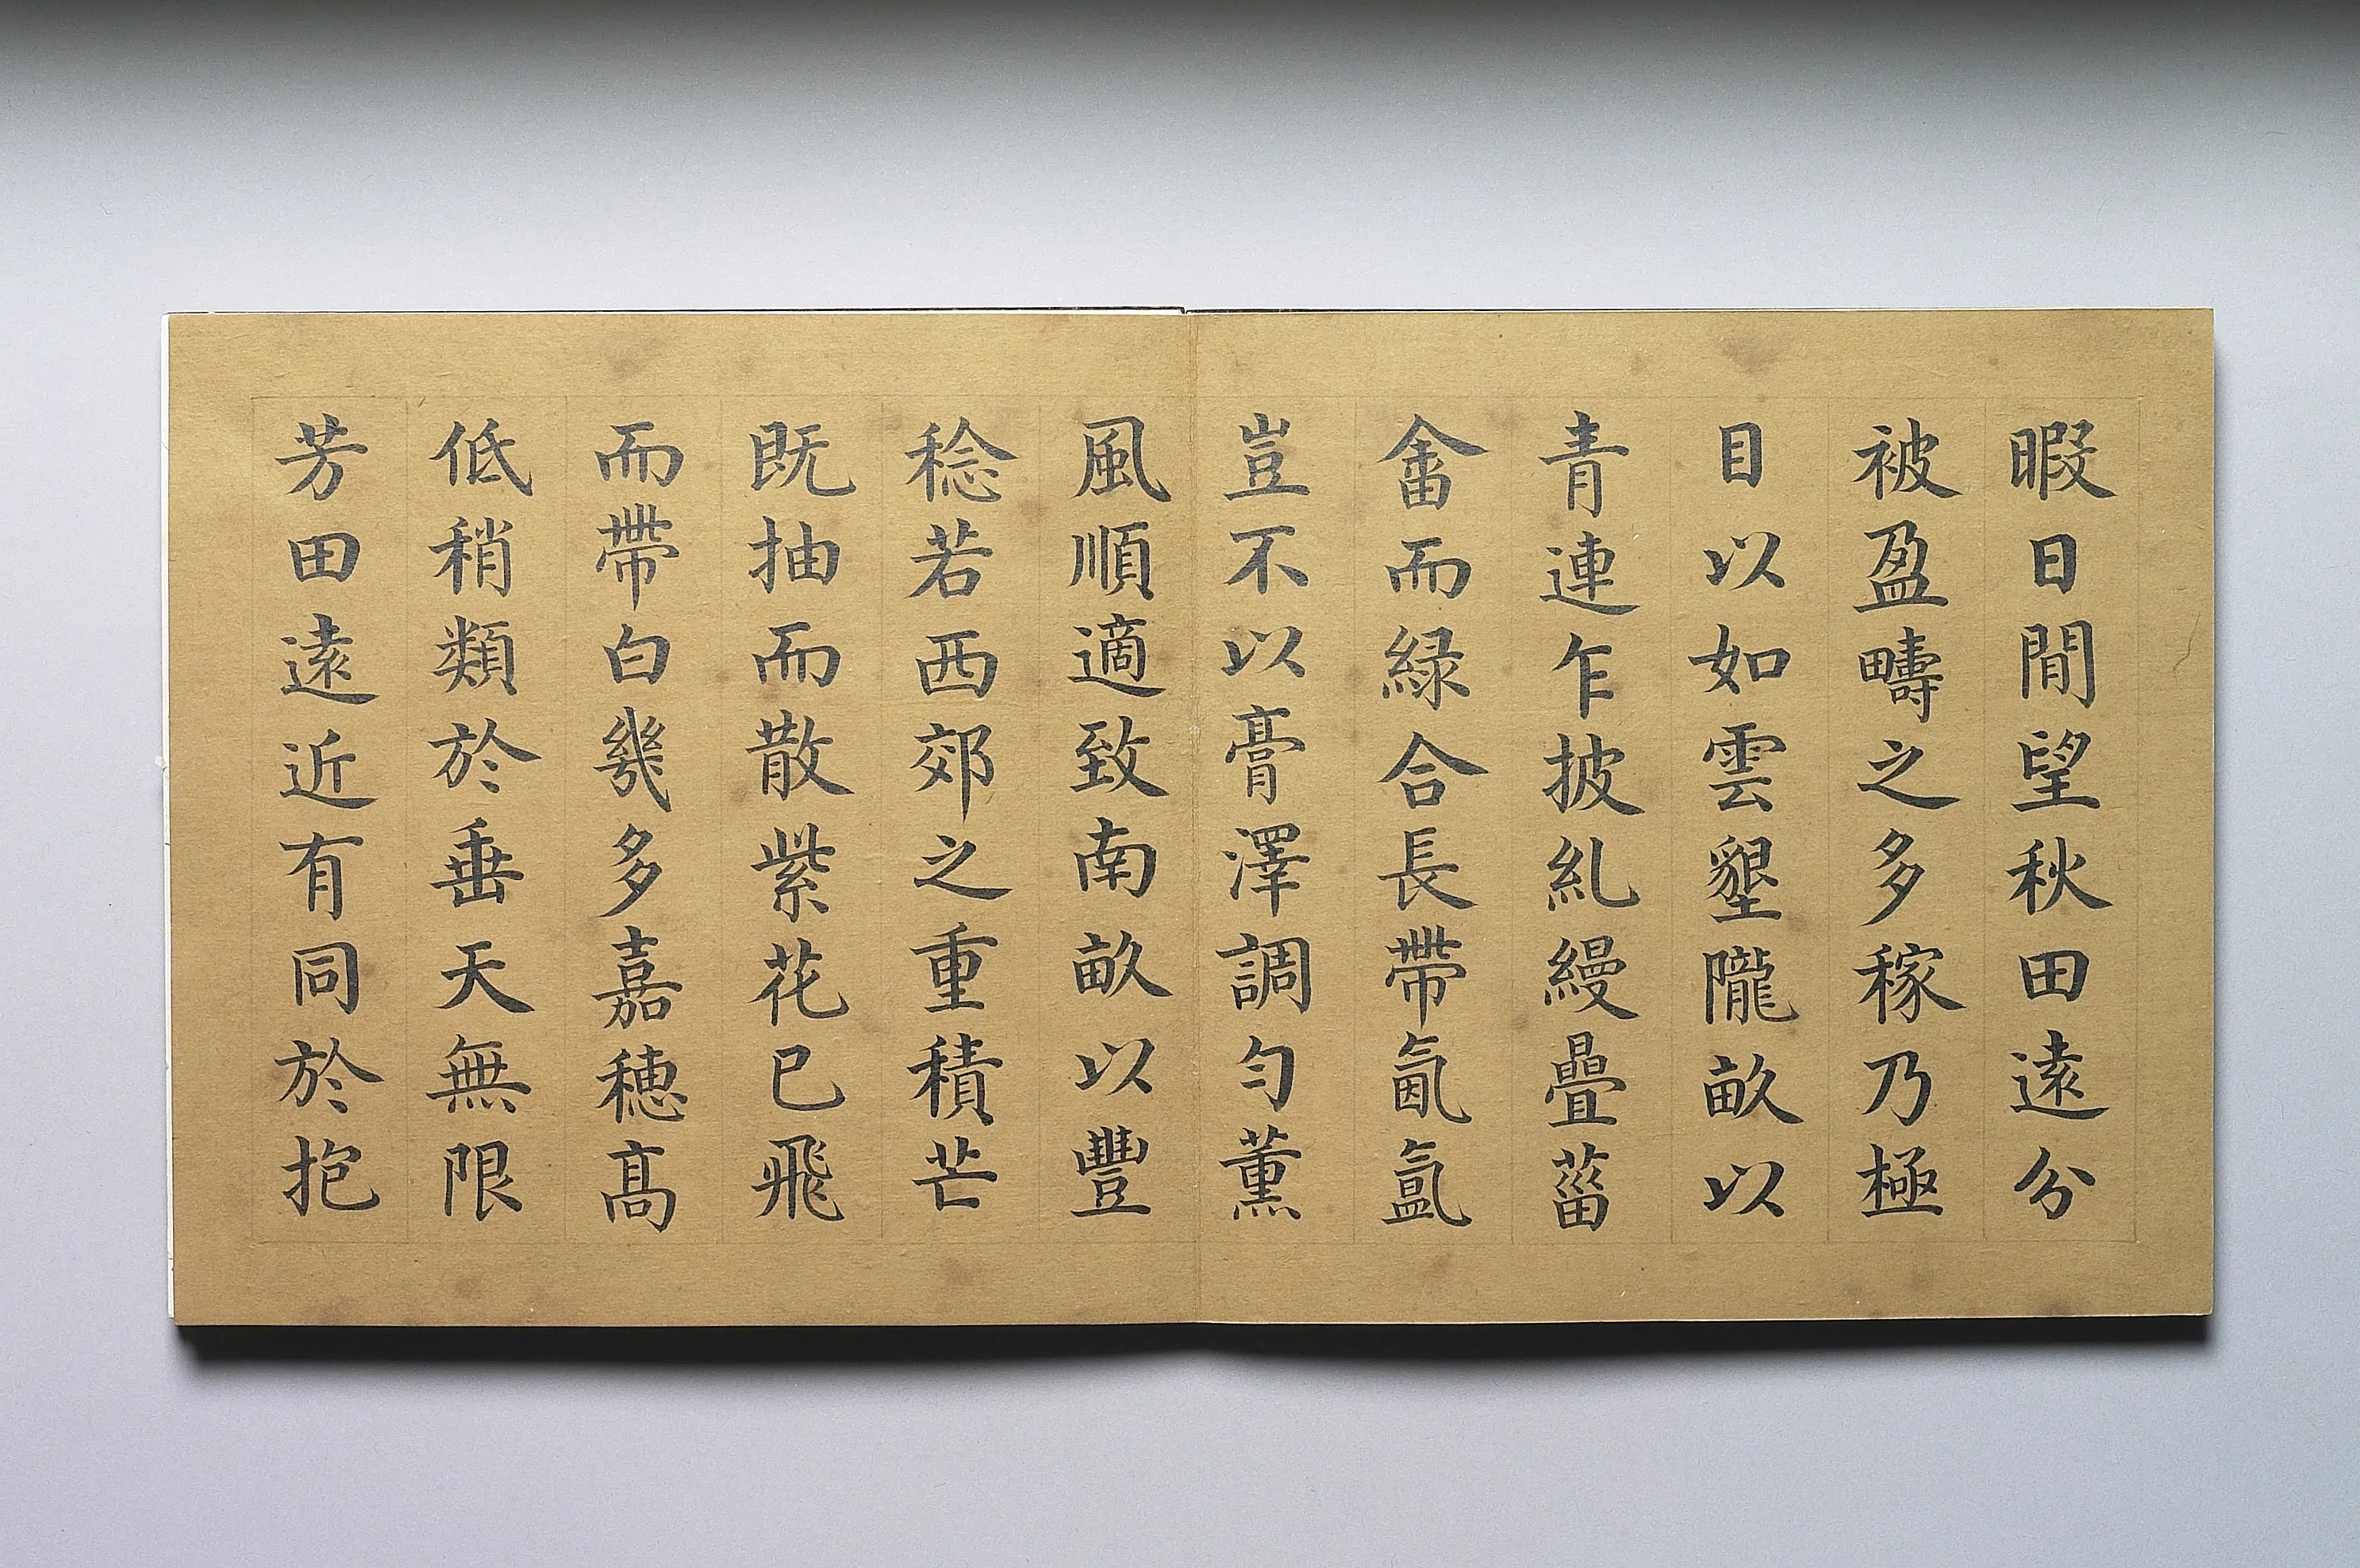 暇日閒望秋田遠分
被盈疇之多稼乃極
目以如雲墾隴畝以
青連乍披糺縵疊菑
畬而緑合長帶氤氳
豈不以膏澤調勻薰
風順適致南畝以豐
稔若西郊之重積芒
既抽而散紫花已飛
而帶白幾多嘉穂高
低稍類於垂天無限
芳田遠近有同於抱